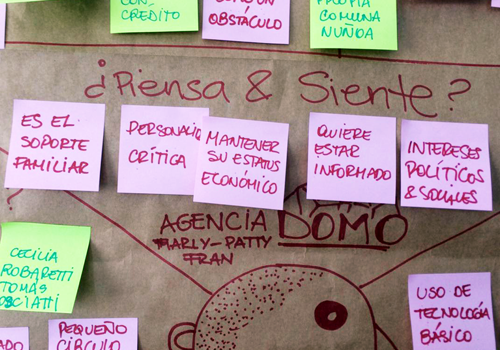 CON-
CREDITO
COMO UN
OBSTÁCULO
PROPIA
COMUNA
ÑUÑOA
¿Piensa & Siente?
ES EL
SOPORTE
FAMILIAR
PERSONALID
CRÍTICA
MANTENER
SU ESTATUS
ECONÓMICO
QUIERE
ESTAR
INFORMADO
INTERESES
POLÍTICOS
& SOCIALES
?
AGENCIA DOMO
MARLY-PATTY
FRAN
CECILIA
ROBARETTI
TOMAS
PEQUEÑO
CÍRCULO
USO DE
TECNOLOGÍA
BÁSICO